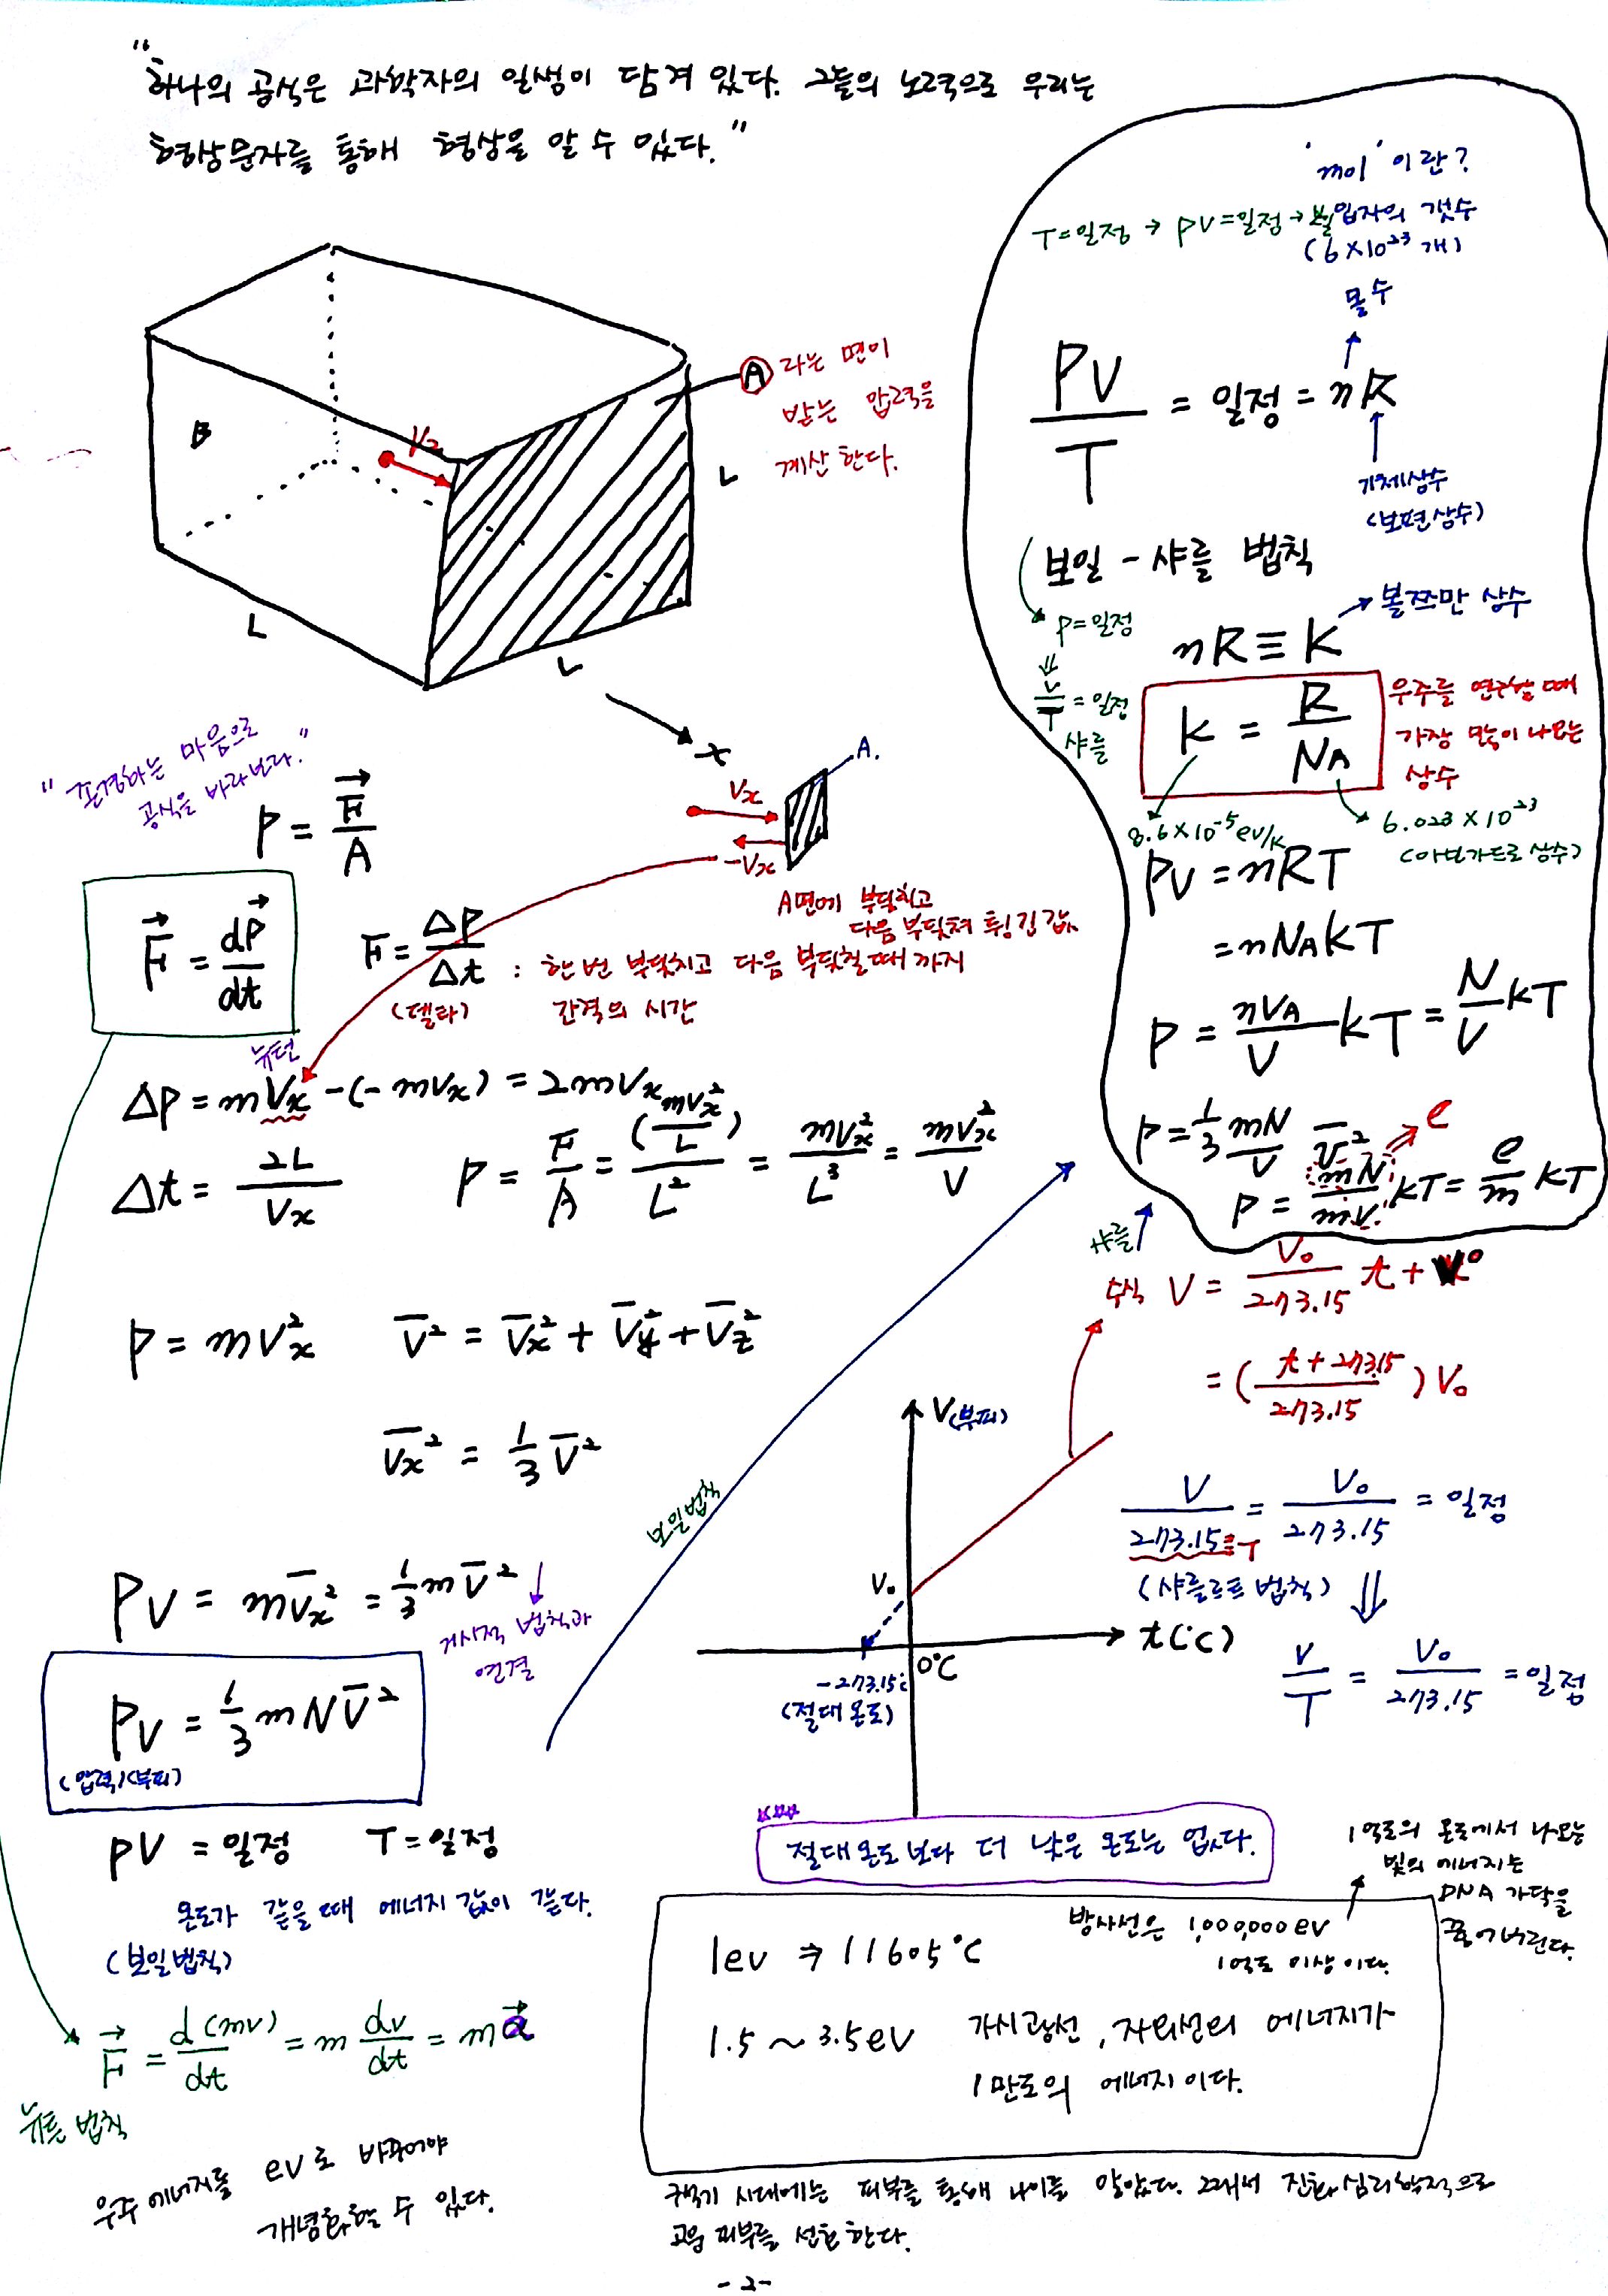 "하나의 공식은 과학자의 일생이 담겨 있다. 그들의 노력으로 우리는
형상문자를 통해 형상을 알 수 있다."
B
Vx
L
L
L
x
A 라는 면이
받는 압력을
계산 한다.
"존경하는 마음으로
공식을 바라보다."
P = F/A
Vx
-Vx
A.
A면에 부딪치고
다음 부딪쳐 튕긴 값
F = dP/dt
뉴턴
F = ΔP/Δt : 한번 부딪치고 다음 부딪칠때 까지
(델타) 간격의 시간
ΔP = mVx -(-mVx) = 2mVx
Δt = 2L/Vx
P = F/A = (mVx²/L)/L² = mVx²/L³ = mVx²/V
P = mVx²
V̅² = V̅x² + V̅y² + V̅z²
V̅x² = 1/3 V̅²
PV = mV̅x² = 1/3 mV̅²
거시적 법칙과
연결
PV = 1/3 mNV̅²
(압력)(부피)
PV = 일정 T = 일정
온도가 같을때 에너지 값이 같다.
(보일법칙)
F = d(mv)/dt = m dv/dt = ma
뉴튼 법칙
우주 에너지를 ev로 바꾸어야
개념화할 수 있다.
'mol'이란?
T=일정 → PV=일정 → 보일
입자의 갯수
(6×10²³개)
몰수
PV/T = 일정 = nR
기체상수
(보편상수)
보일 - 샤를 법칙
P=일정
⇓
V/T = 일정
샤를
nR ≡ K
볼쯔만 상수
k = R/NA
우주를 연구할 때
가장 많이 나오는
상수
8.6×10⁻⁵ev/k
6.023×10²³
(아보가드로 상수)
PV = nRT
= nNAkT
P = nVA/V kT = N/V kT
P = 1/3 mN/V V̅²
e
P = mN/mV kT = e/m kT
보일법칙
샤를
수식 V = V₀/273.15 t + V₀
= (t+273.15/273.15) V₀
V/273.15≡T = V₀/273.15 = 일정
(샤를르트 법칙)
⇓
V/T = V₀/273.15 = 일정
V(부피)
V₀
t(°C)
0°C
-273.15°C
(절대온도)
절대온도보다 더 낮은 온도는 없다.
1억도의 온도에서 나오는
빛의 에너지는
DNA 가닥을
끊어버린다.
방사선은 1,000,000ev
1억도 이상이다.
1ev ⇒ 11605°C
1.5 ~ 3.5eV 가시광선, 자외선의 에너지가
1만도의 에너지이다.
구석기 시대에는 피부를 통해 나이를 알았다. 그래서 진화심리학적으로
고운 피부를 선호한다.
-2-